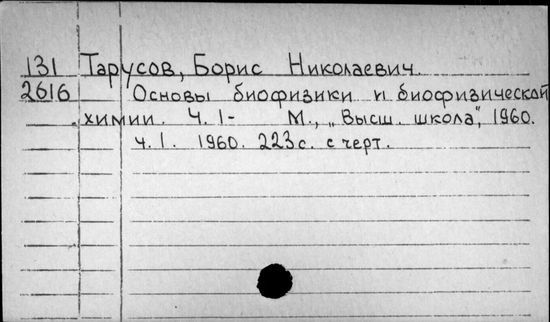 131 Тарусов, Борис Николаевич.
2616 Основы биофизики и биофизической
химии. Ч. 1- М., „Высш. школа", 1960.
ч. 1. 1960. 223 с. с черт.